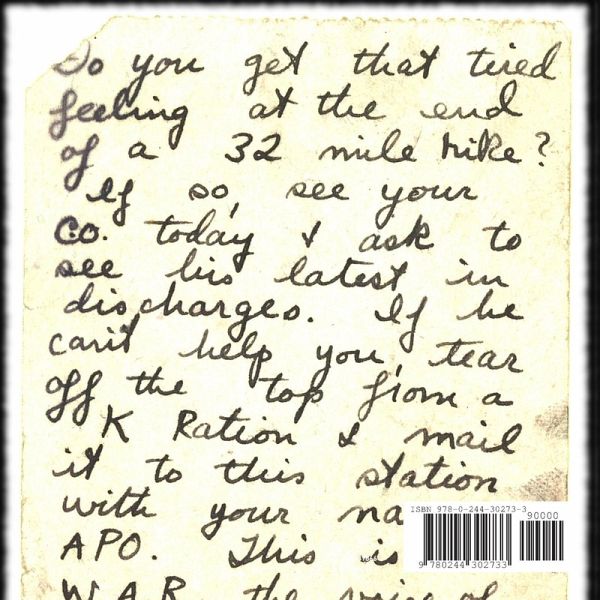 Do you get that tired
feeling at the end
of a 32 mile hike?
If so, see your
CO. today & ask to
see his latest in
discharges. If he
can't help you, tear
off the top from a
K Ration & mail
it to this station
with your na
APO. This is
W.A.R. the voice of
ISBN 978-0-244-30273-3
90000
9 780244 302733